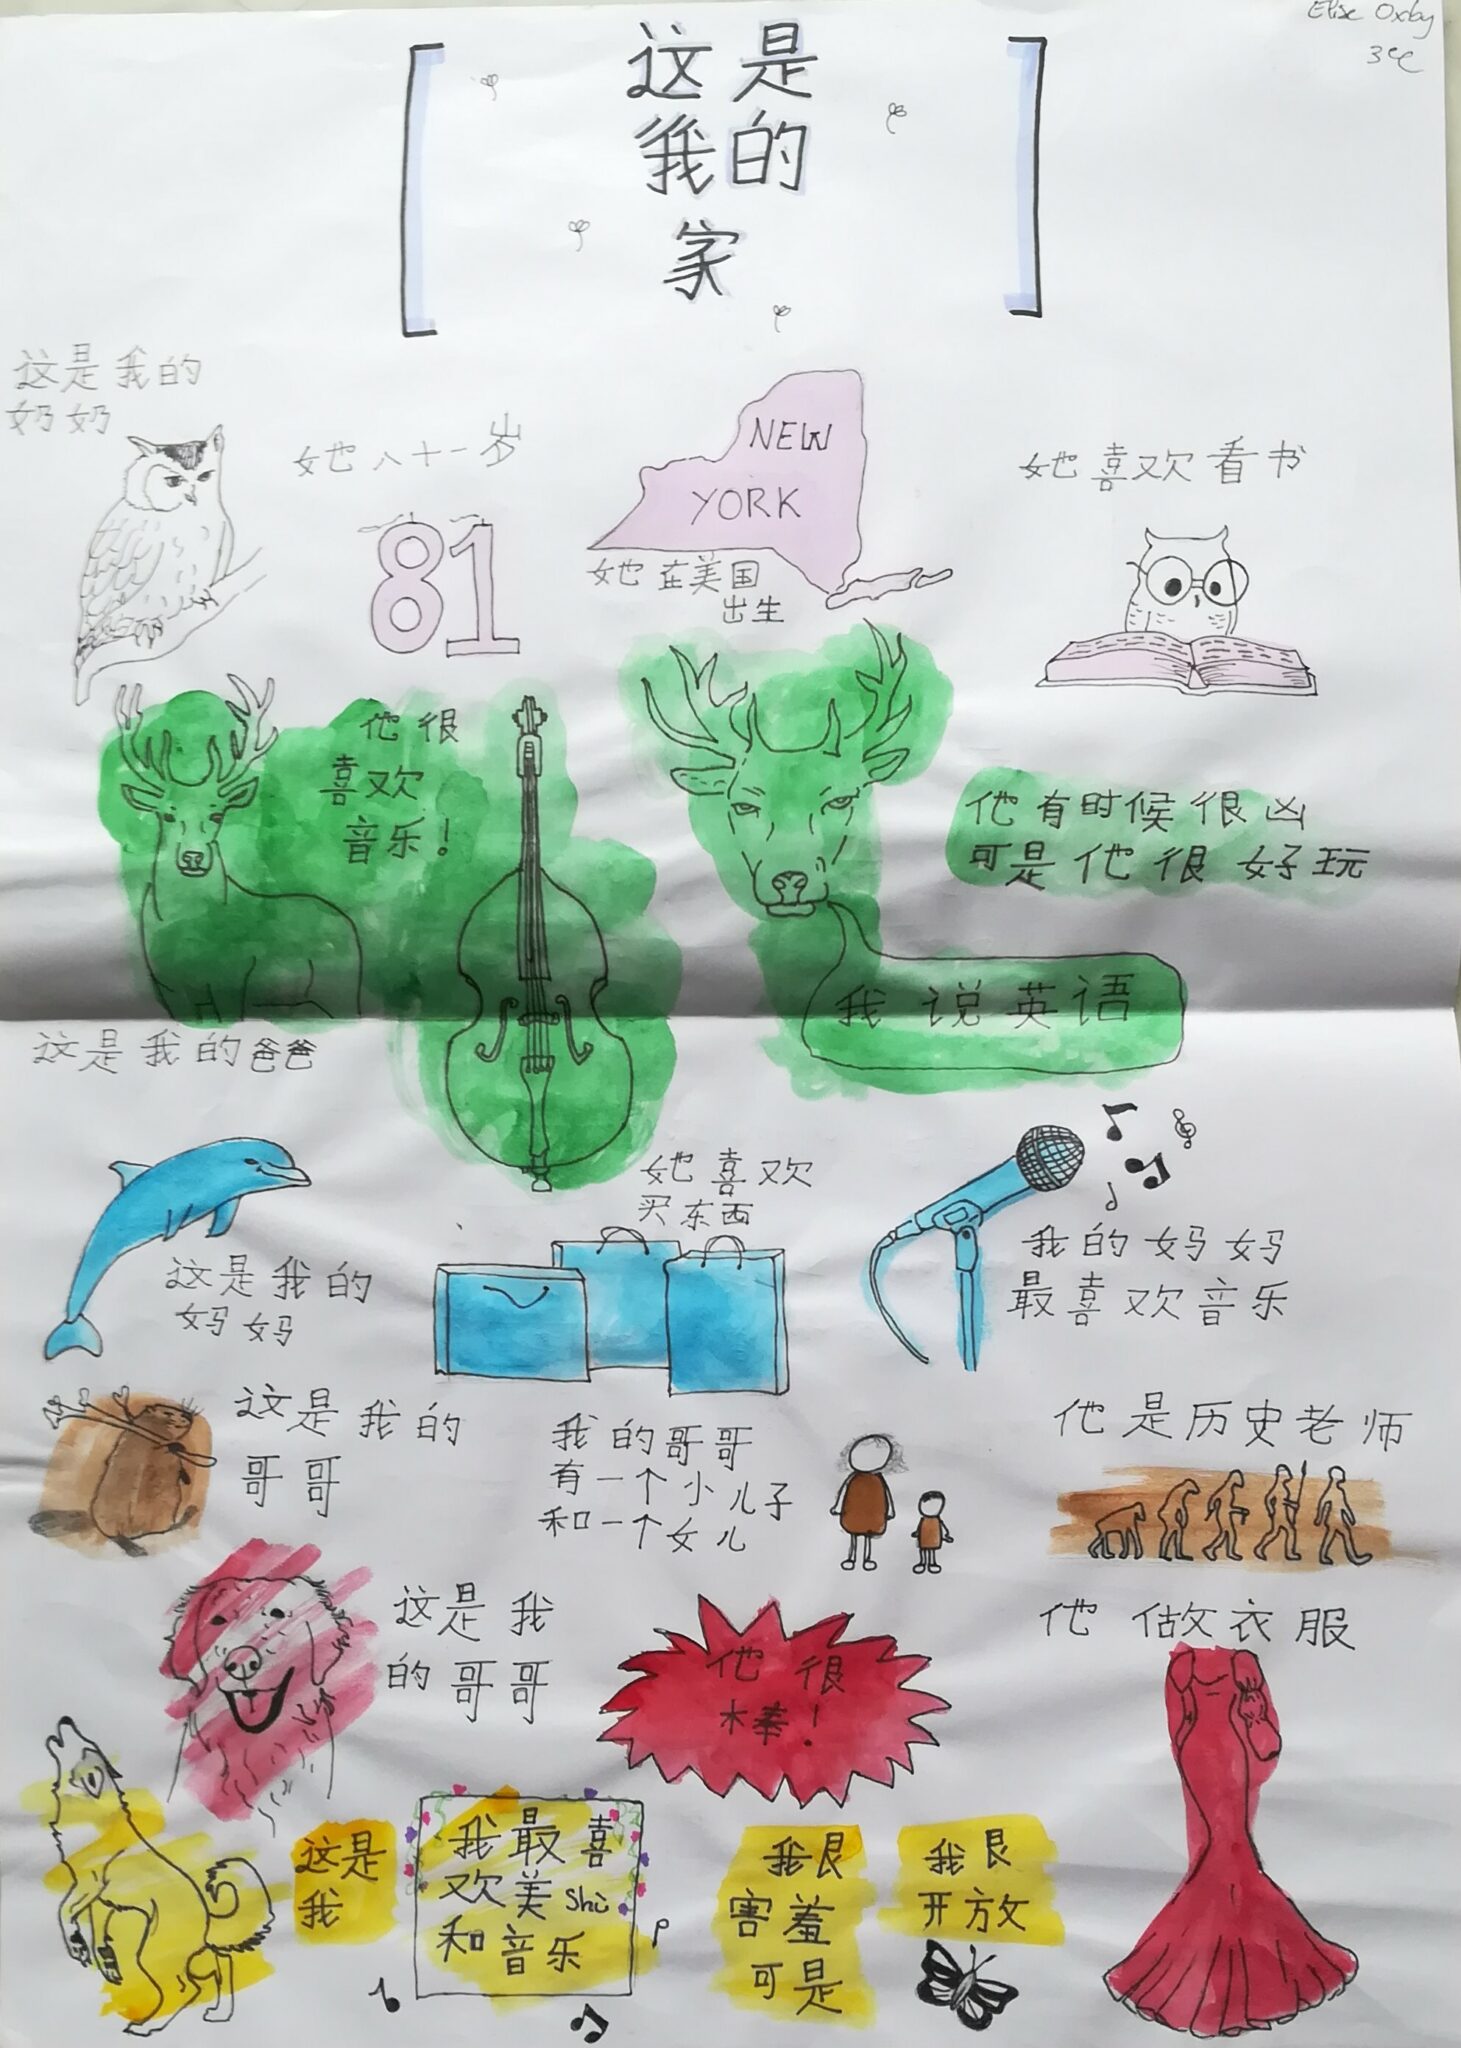 Elise Oxby
3ᵉC
这是
我的
家
这是我的
奶奶
她八十一岁
81
NEW
YORK
她在美国
出生
她喜欢看书
他很
喜欢
音乐！
这是我的爸爸
他有时候很凶
可是他很好玩
我说英语
这是我的
妈妈
她喜欢
买东西
我的妈妈
最喜欢音乐
这是我的
哥哥
我的哥哥
有一个小儿子
和一个女儿
他是历史老师
这是我
的哥哥
他很
棒！
他做衣服
这是
我
我最喜
欢美shù
和音乐
我艮
害羞
可是
我艮
开放